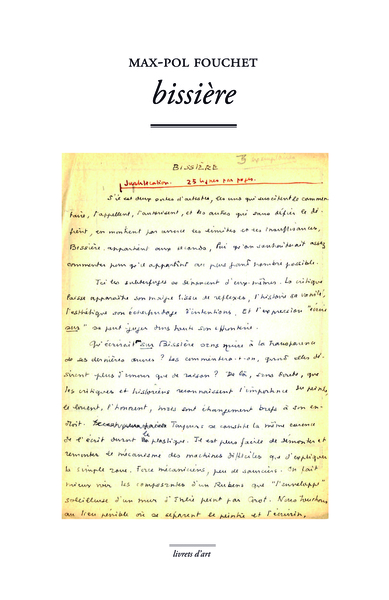 MAX-POL FOUCHET
bissière
BISSIÈRE
Justification. 25 lignes par page.
S'il est deux sortes d'artistes, les uns qui suscitent le commen-
taire, l'appellent, l'autorisent, et les autres qui sans défier le dé-
fient, en montrent par avance les limites et les insuffisances,
Bissière appartient aux seconds, lui qu'on souhaiterait assez
commenter pour qu'il appartînt au plus grand nombre possible.
Ici les subterfuges se dénoncent d'eux-mêmes. La critique
laisse apparaître son maigre tissu de réflexes, l'histoire sa vanité,
l'esthétique son échafaudage d'intentions. Et l'expression "écrire
sur" se peut juger dans toute son effronterie.
Qu'écrirait sur Bissière sans nuire à la transparence
de ses dernières œuvres ? Les commentera-t-on, quand elles dé-
sirent plus d'amour que de raison ? De là, sans doute, que
les critiques et historiens reconnaissent l'importance du peintre,
le louent, l'honorent, mais sont étrangement brefs à son en-
droit. Toujours se constate la même carence
de l'écrit devant le plastique. Il est plus facile de démonter et
remonter le mécanisme des machines difficiles que d'expliquer
le simple rouet. Force mécaniciens, peu de sourciers. On fait
mieux voir les composantes d'un Rubens que "l'enveloppe"
soleilleuse d'un mur d'Italie peint par Corot. Nous touchons
au lieu pénible où se séparent le peintre et l'écrivain,
livrets d'art